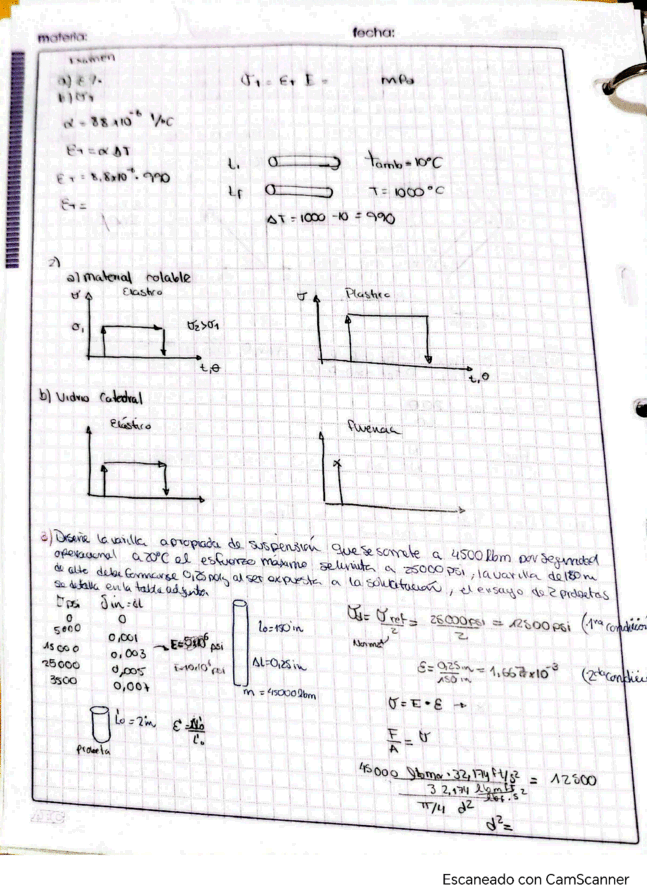 materia:
fecha:
Examen
a) ε %
b) σT
σT = εT E = mPa
α = 88x10⁻⁶ 1/°C
εT = α ΔT
εT = 8,8x10⁻⁶ · 990
εT =
Li
tamb = 10°C
Lf
T = 1000°C
ΔT = 1000 - 10 = 990
2)
a) material rolable
Elastico
Plastico
σ
σ1
σ2 > σ1
t, θ
σ
t, θ
b) Vidrio Catedral
Elástico
fluencia
3) Diseñe la varilla apropiada de suspensión que se somete a 4500 lbm por seguridad
operacional a 20°C el esfuerzo máximo se limita a 25000 psi, la varilla de 150 in
de alto debe formarse 0,25 pulg al ser expuesta a la solicitación, el ensayo de 2 probetas
se detalla en la tabla adjunta
σ psi δ in = ΔL
0 0
5000 0,001
15000 0,003
25000 0,005
3500 0,007
→ E = 5x10⁶ psi
E = 10x10⁶ psi
Lo = 150 in
ΔL = 0,25 in
m = 45000 lbm
Lo = 2 in
probeta
σd = σref/2 = 25000 psi/2 = 12500 psi (1ra condición
Normal
ε = 0,25 in/150 in = 1,667x10⁻³ (2da condición
σ = E · ε →
F/A = σ
45000 lbm · 32,174 ft/s² = 12500
32,174 lbm ft/lbf · s²
π/4 d²
d² =
Escaneado con CamScanner